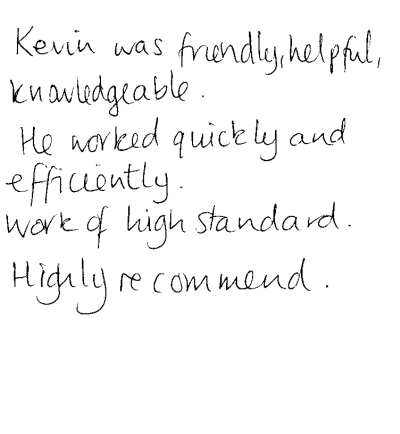 Kevin was friendly, helpful,
knowledgeable.
He worked quickly and
efficiently.
Work of high standard.
Highly recommend.